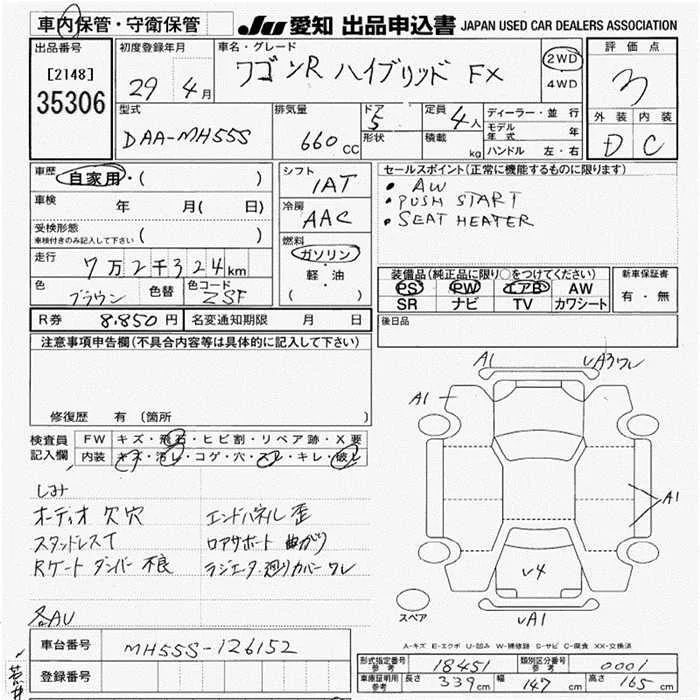 車内保管・守衛保管 JU 愛知 出品申込書 JAPAN USED CAR DEALERS ASSOCIATION
出品番号 初度登録年月 車名・グレード 評価点
[2148] 29 4月 ワゴンR ハイブリッド FX 2WD 3
35306 4WD
型式 排気量 ドア 5 定員 4人 ディーラー・並行 外装 内装
DAA-MH55S 660cc 形状 積載 kg モデル年式 年 D C
ハンドル 左・右
車歴 自家用・( ) シフト 1AT セールスポイント(正常に機能するものに限ります)
車検 年 月( 日) 冷房 AAC ・AW
受検形態 ・PUSH START
車検付きのみ記入して下さい ( ) 燃料 ・SEAT HEATER
走行 7万2千324km ガソリン
軽・油 装備品(純正品に限り○をつけてください) 新車保証書
色 ブラウン 色替 色コード ZSF ( ) PS PW エアB AW 有・無
SR ナビ TV カワシート
R券 8.850円 名変通知期限 月 日 後日品
注意事項申告欄(不具合内容等は具体的に記入して下さい)
A1 A1
修復歴 有 (箇所 )
検査員 FW キズ・飛石・ヒビ割・リペア跡・X要
記入欄 内装 キズ・汚レ・コゲ・穴・スレ・キレ・破レ
A1
オーディオ欠穴 エンドパネル歪
スタッドレスT ロアサポート曲がり
Rゲートダンパー不良 ラジエタ廻りカバーワレ
v4
スペア
各AU vA1
A-キズ E-エクボ U-凹み W-補修跡 S-サビ C-腐食 XX-交換済
車台番号 MH55S-126152
登録番号 形式指定番号 参考 18451 類別区分番号 参考 0001
車庫証明用 参考 長さ 339cm 幅 147cm 高さ 165cm